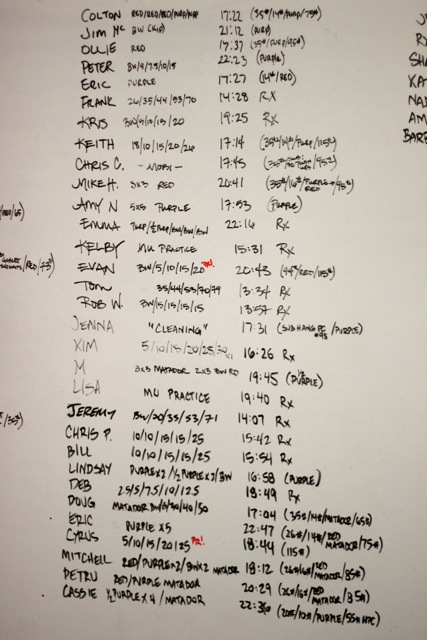 COLTON RED/RED/RED/PURP/PURP 17:22 (35#/14#/PURP/75#)
JIM MC BW (KIP) 21:12 (PURP)
OLLIE RED 17:37 (35#/PURP/95#)
PETER BW/5/7.5/10/15 22:23 (PURPLE)
ERIC PURPLE 17:27 (14#/RED)
FRANK 26/35/44/53/70 14:28 RX
KRIS BW/5/10/15/20 19:25 RX
KEITH 18/10/15/20/26 17:14 (35#/14#/PURP/115#)
CHRIS C. - MOBY - 17:45
MIKE H. 3x3 RED 20:41 (35#/16#/PURPLE+RED/95#)
AMY N 5x5 PURPLE 17:53 (PURPLE)
EMMA PURP/½PURP/BW/BW/BW 22:16 RX
KELBY MU PRACTICE 15:31 RX
EVAN BW/5/10/15/20 PR! 20:43 (44#/RED/115#)
TOM 35/44/53/70/79 13:34 RX
ROB W. BW/15/15/15 13:57 RX
JENNA "CLEANING" 17:31 (SUB HANG PC #95/PURPLE)
KIM 5/10/15/20/25/30 16:26 RX
M 3x3 MATADOR 2x3 BW RD 19:45 (½ PURPLE)
LISA MU PRACTICE 19:40 RX
JEREMY BW/20/35/53/71 14:07 RX
CHRIS P. 10/10/15/15/25 15:42 RX
BILL 10/10/15/15/25 15:54 RX
LINDSAY PURPLEx2/½PURPLEx2/BW 16:58 (PURPLE)
DEB 2.5/5/7.5/10/12.5 18:49 RX
DOUG MATADOR BW/5/30/40/50 17:04 (35#/14#/MATADOR/65#)
ERIC PURPLE x5 22:47 (26#/14#/RED MATADOR/75#)
CYRUS 5/10/15/20/25 PR! 18:44 (115#)
MITCHELL RED/PURPLEx2/BWx2 MATADOR 18:12 (26#/16#/RED MATADOR/85#)
PETRU RED/PURPLE MATADOR 20:29 (26#/16#/RED MATADOR/85#)
CASSIE ½PURPLE x4/MATADOR 22:30 (20#/12#/PURPLE/55# HPC)